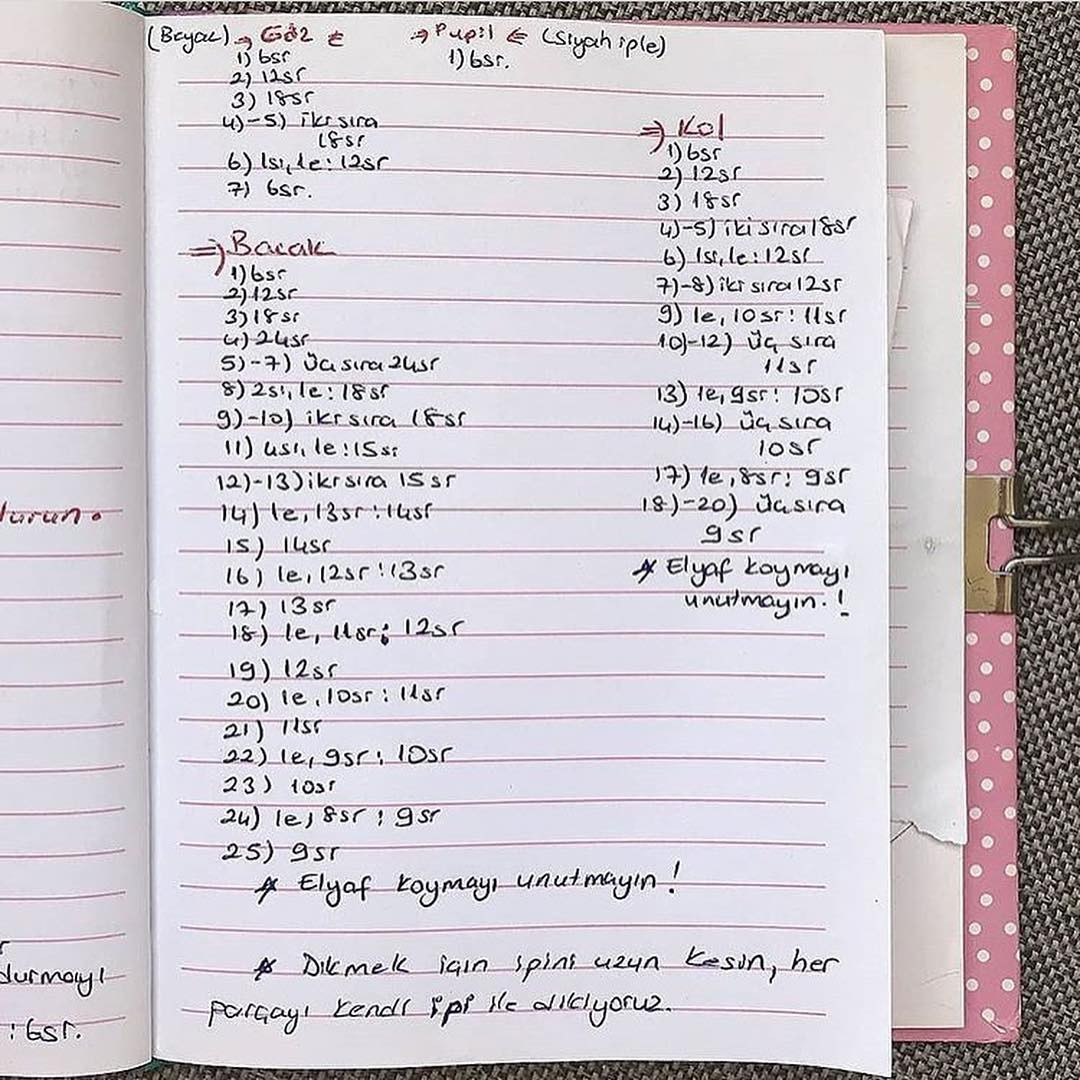 (Beyaz) → Göz ←
1) 6sr
2) 12sr
3) 18sr
4)-5) iki sıra
18sr
6) 1sı, le : 12sr
7) 6sr.
→ Pupil ← (Siyah iple)
1) 6sr.
⇒ Bacak
1) 6sr
2) 12sr
3) 18sr
4) 24sr
5)-7) Üç sıra 24sr
8) 2sı, le : 18sr
9)-10) iki sıra 18sr
11) 4sı, le : 15sı
12)-13) iki sıra 15sr
14) le, 13sr : 14sr
15) 14sr
16) le, 12sr : 13sr
17) 13sr
18) le, 11sr : 12sr
19) 12sr
20) le, 10sr : 11sr
21) 11sr
22) le, 9sr : 10sr
23) 10sr
24) le, 8sr : 9sr
25) 9sr
* Elyaf koymayı unutmayın !
⇒ Kol
1) 6sr
2) 12sr
3) 18sr
4)-5) iki sıra 18sr
6) 1sı, le : 12sr
7)-8) iki sıra 12sr
9) le, 10sr : 11sr
10)-12) üç sıra
11sr
13) le, 9sr : 10sr
14)-16) üç sıra
10sr
17) le, 8sr : 9sr
18)-20) üç sıra
9sr
* Elyaf koymayı
unutmayın. !
* Dikmek için ipini uzun kesin, her
parçayı kendi ipi ile dikiyoruz.
durun.
durmayı
: 6sr.